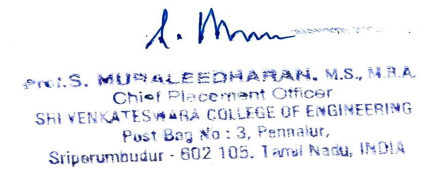 Prof.S. MURALEEDHARAN, M.S., M.B.A.
Chief Placement Officer
SRI VENKATESWARA COLLEGE OF ENGINEERING
Post Bag No : 3, Pennalur,
Sriperumbudur - 602 105. Tamil Nadu, INDIA